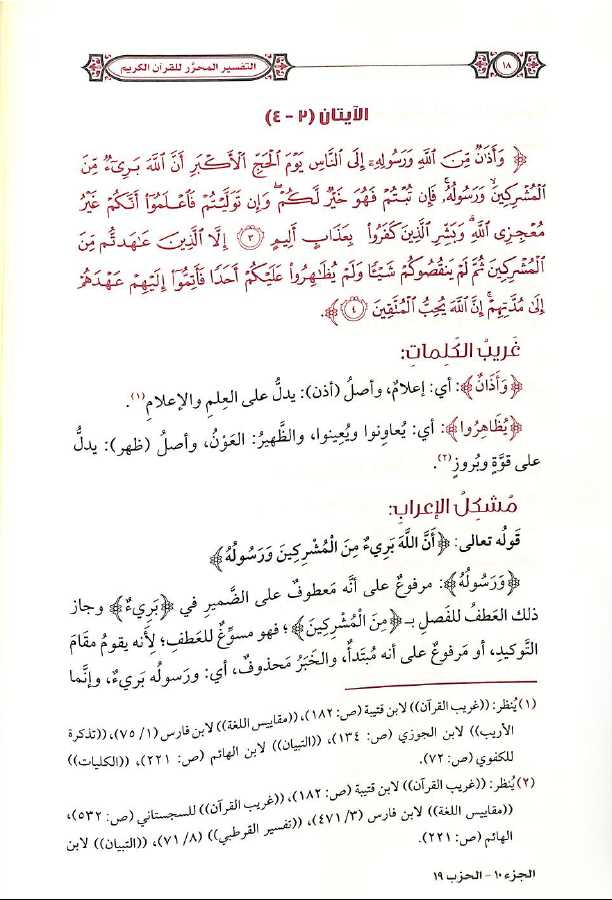 ١٨
التفسير المحرَّر للقرآن الكريم
الآيتان (٢ - ٤)
﴿ وَأَذَٰنٌ مِّنَ ٱللَّهِ وَرَسُولِهِۦٓ إِلَى ٱلنَّاسِ يَوْمَ ٱلْحَجِّ ٱلْأَكْبَرِ أَنَّ ٱللَّهَ بَرِىٓءٌ مِّنَ
ٱلْمُشْرِكِينَ ۙ وَرَسُولُهُۥ ۚ فَإِن تُبْتُمْ فَهُوَ خَيْرٌ لَّكُمْ ۖ وَإِن تَوَلَّيْتُمْ فَٱعْلَمُوٓا۟ أَنَّكُمْ غَيْرُ
مُعْجِزِى ٱللَّهِ ۗ وَبَشِّرِ ٱلَّذِينَ كَفَرُوا۟ بِعَذَابٍ أَلِيمٍ ٣ إِلَّا ٱلَّذِينَ عَٰهَدتُّم مِّنَ
ٱلْمُشْرِكِينَ ثُمَّ لَمْ يَنقُصُوكُمْ شَيْـًٔا وَلَمْ يُظَٰهِرُوا۟ عَلَيْكُمْ أَحَدًا فَأَتِمُّوٓا۟ إِلَيْهِمْ عَهْدَهُمْ
إِلَىٰ مُدَّتِهِمْ ۚ إِنَّ ٱللَّهَ يُحِبُّ ٱلْمُتَّقِينَ ٤ ﴾.
غَريبُ الكَلِماتِ:
﴿وَأَذَانٌ﴾: أي: إعلامٌ، وأصلُ (أذن): يدلُّ على العِلمِ والإعلامِ(١).
﴿يُظَاهِرُوا﴾: أي: يُعاوِنوا ويُعينوا، والظَّهيرُ: العَوْنُ، وأصلُ (ظهر): يدلُّ
على قوَّةٍ وبُروزٍ(٢).
مُشكِلُ الإعرابِ:
قَولُه تعالى: ﴿أَنَّ اللَّهَ بَرِيءٌ مِنَ الْمُشْرِكِينَ وَرَسُولُهُ﴾
﴿وَرَسُولُهُ﴾: مرفوعٌ على أنَّه معطوفٌ على الضَّميرِ في ﴿بَرِيءٌ﴾ وجاز
ذلك العَطفُ للفَصلِ بـ﴿مِنَ الْمُشْرِكِينَ﴾؛ فهو مسوِّغٌ للعَطفِ؛ لأنَّه يقومُ مقامَ
التَّوكيدِ، أو مَرفوعٌ على أنه مُبتَدأٌ، والخبَرُ محذوفٌ، أي: ورَسولُه بَريءٌ، وإنَّما
(١) يُنظر: ((غريب القرآن)) لابن قتيبة (ص: ١٨٢)، ((مقاييس اللغة)) لابن فارس (١/ ٧٥)، ((تذكرة
الأريب)) لابن الجوزي (ص: ١٣٤)، ((التبيان)) لابن الهائم (ص: ٢٢١)، ((الكليات))
للكفوي (ص: ٧٢).
(٢) يُنظر: ((غريب القرآن)) لابن قتيبة (ص: ١٨٢)، ((غريب القرآن)) للسجستاني (ص: ٥٣٢)،
((مقاييس اللغة)) لابن فارس (٣/ ٤٧١)، ((تفسير القرطبي)) (٨/ ٧١)، ((التبيان)) لابن
الهائم (ص: ٢٢١).
الجزء ١٠ - الحزب ١٩